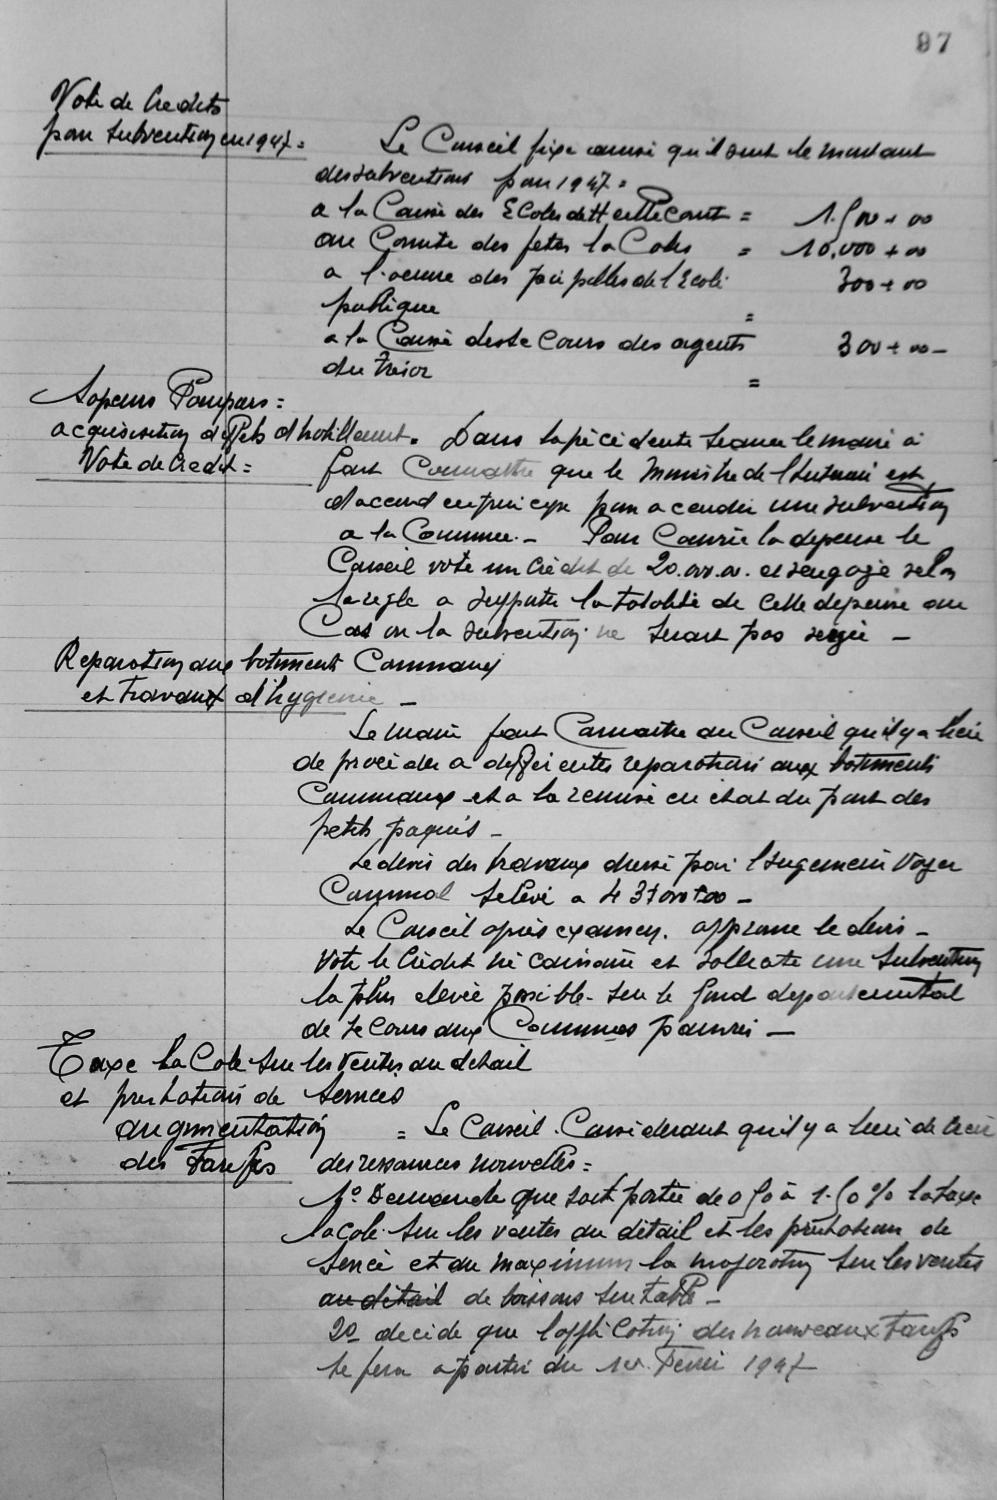 97
Vote de Credits
pour subvention en 1947 =
Le Conseil fixe comme qu'il suit le montant
des subventions pour 1947 =
a la Caisse des Ecoles de = 1.500 + 00
au Comite des fetes locales = 10.000 + 00
a l'oeuvre des pupilles de l'Ecole 300 + 00
publique =
a la Caisse de secours des agents 300 + 00 -
du Trésor =
Sapeurs Pompiers =
acquisition d'effets d'habillement.
Vote de Credit =
Dans la précédente seance le maire a
fait Connaitre que le Ministre de l'Interieur est
d'accord en principe pour accorder une subvention
a la Commune. - Pour Couvrir la depense le
Conseil vote un Crédit de 20.000.00. et s'engage selon
la regle a supporter la totalité de cette depense au
Cas ou la subvention ne serait pas versée -
Reparation aux batiments Communaux
et travaux d'hygiene -
Le maire fait Connaitre au Conseil qu'il y a lieu
de proceder a differentes reparations aux batiments
Communaux et a la remise en etat du pont des
petits paquis -
Le devis des travaux dressé par l'Ingenieur Voyer
Communal s'elève a 437000+00 -
Le Conseil après examen. approuve le devis -
Vote le Crédit nécessaire et sollicite une subvention
la plus elevée possible - sur le fond departemental
de secours aux Communes pauvres -
Taxe locale sur les ventes au detail
et prestations de services
augmentation
des Tarifs
= Le Conseil. Considerant qu'il y a lieu de creer
des ressources nouvelles =
1º Demande que soit portée de 0 50 à 1.50 % la taxe
locale sur les ventes au détail et les prestations de
service et au maximum la majoration sur les ventes
au détail de boissons sur table -
2º decide que l'application des nouveaux Tarifs
se fera a partir du 1er Fevrier 1947